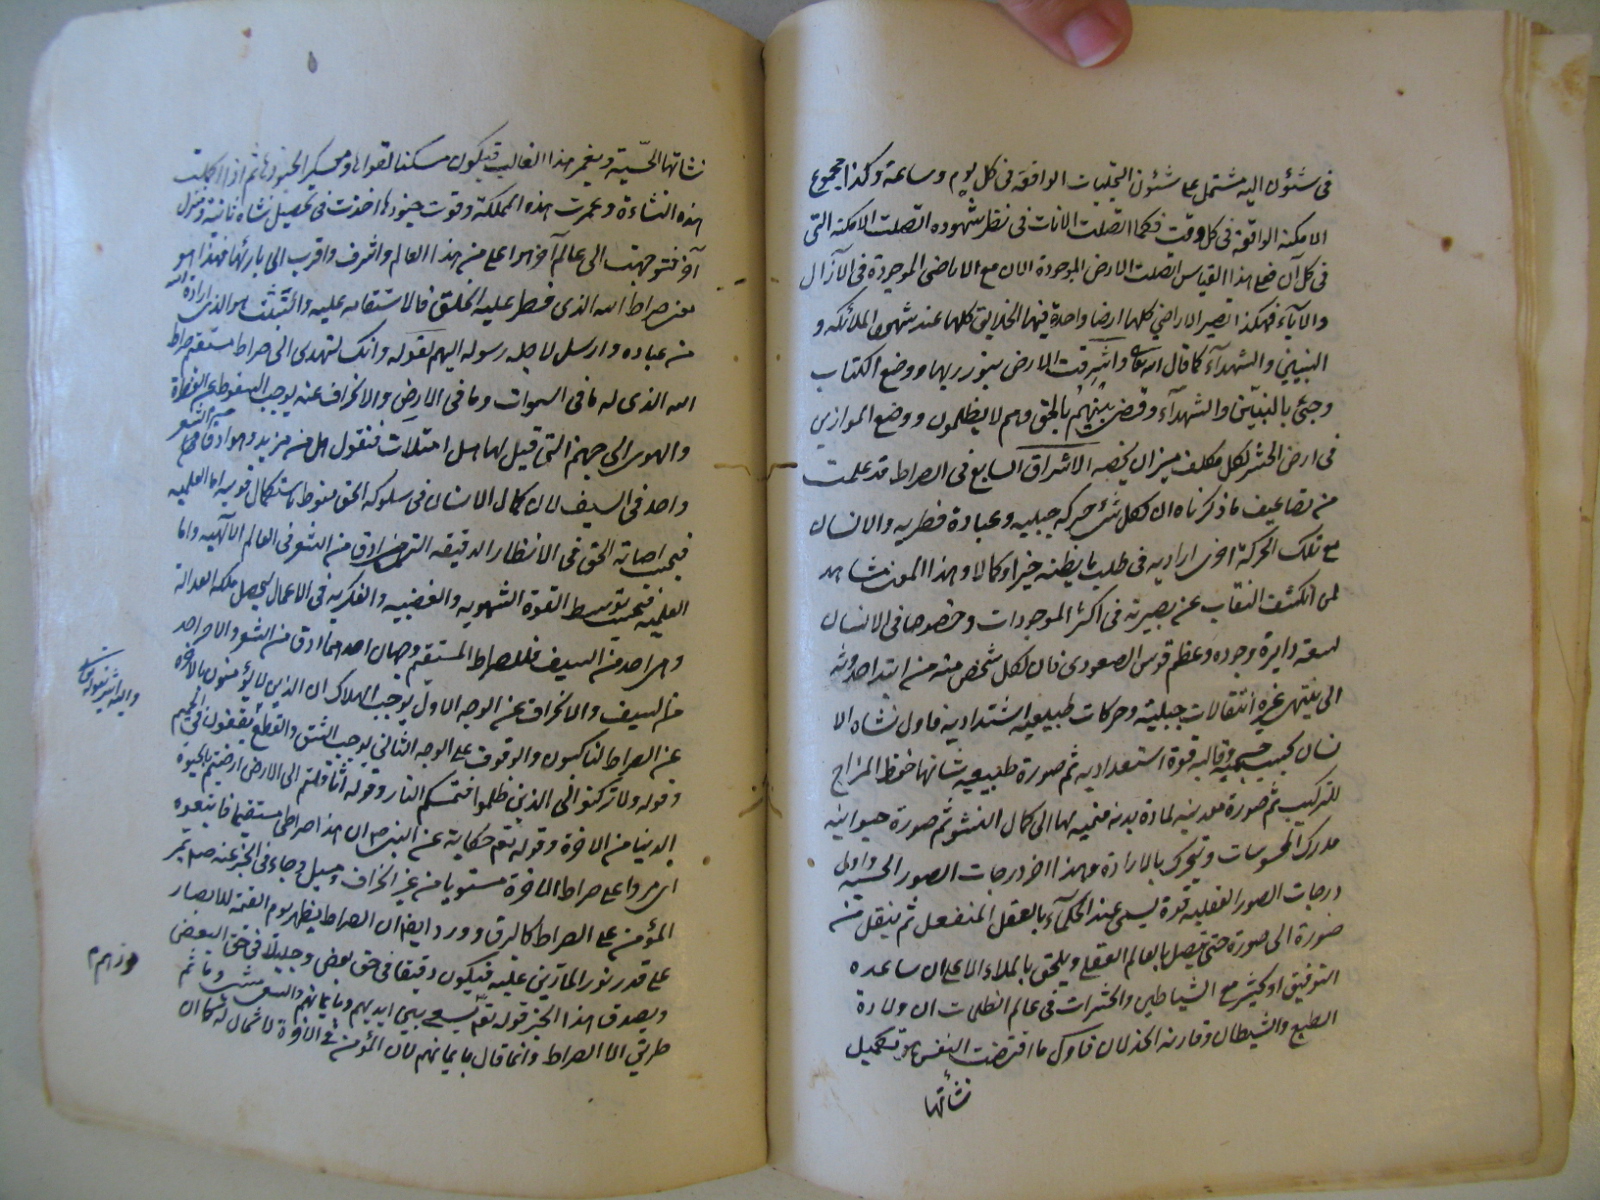 فى شئون اليه مشتمل على شئون التجليات الواقعة فى كل يوم وساعة وكذا مجموع
الامكنة الواقعة فى كل وقت فكما اتصلت الانات فى نظر شهوده اتصلت الامكنة التى
فى كل آن فعلى هذا القياس اتصلت الارض الموجودة الان مع الاراضى الموجودة فى الآزال
والآباد فهكذا تصير الاراضى كلها ارضا واحدة فيها الخلائق كلها عند شهود الملائكة و
النبيين والشهداء كما قال الله تعالى واشرقت الارض بنور ربها ووضع الكتاب
وجئ بالنبيين والشهدآء وقضى بينهم بالحق وهم لا يظلمون ووضع الموازين
فى ارض الحشر لكل مكلف ميزان يخصه الاشراق السابع فى الصراط قد علمت
من تضاعيف ما ذكرناه ان لكل شئ حركه جبليه وعبادة فطريه والانسان
مع تلك الحركة اخرى اراديه فى طلب ما يظنه خيرا وكمالا وهذا المعنى مشاهد
لمن انكشف النقاب عن بصيرته فى اكثر الموجودات وخصوصا فى الانسان
لسعة دايرة وجوده وعظم قوس الصعودى فان لكل شخص منه من ابتداء حدوثه
الى منتهى عمره انتقالات جبلية وحركات طبيعيه اشتدادية فاول نشاه الا
نسان بحسب جسميه وقالبه قوة استعداديه ثم صورة طبيعيه شانها حفظ المزاج
للتركيب ثم صورة معدنيه لمادة بدنه منميه لها الى كمال النشو ثم صورة حيوانيه
مدرك المحسوسات وتتحرك بالارادة وهذا اخر درجات الصور الحسيه واولى
درجات الصور العقليه قوة يسمى عند الحكمآء بالعقل المنفعل ثم ينقل من
صورة الى صورة حتى يتصل بالعالم العقلى ويلحق بالملاء الاعلى ان ساعده
التوفيق او يحشر مع الشياطين والحشرات فى عالم الظلمات ان ولاه
الطبع والشيطان وقارنه الخذلان فاول ما اقتضت النفس هو تكميل
نشأتها
نشاتها الحسّية ويعمر هذا القالب فيكون مسكنا لقواها ومعسكر الجنودها ثم اذا كملت
هذه النشاءة وعمرت هذه المملكة وقوت جنودها اخذت فى تحصيل نشاه ثانية ومنزل
آخر فتوجهت الى عالم آخر هو اعلى من هذا العالم واشرف واقرب الى بارئها فهذا هو
معنى صراط الله الذى فطر عليه الخلق فالاستقامه عليه والتثبت هو الذى اراده الله
من عباده وارسل لاجله رسوله اليهم لقوله وانك لتهدى الى صراط مستقيم صراط
الله الذى له ما فى السموات وما فى الارض والانحراف عنه يوجب السقوط عن الفطرة
والهوى الى جهنم التى قيل لها هل امتلات فتقول هل من مزيد وهو ادق من الشعر
واحد فى السيف لان كمال الانسان فى سلوكه الحق منوط باستكمال قوتيه اما العلميه
فبحسب اصابة الحق فى الانظار الدقيقه التى هى ادق من الشعر فى العالم الالهيه واما
العمليه فبحسب توسط القوة الشهويه والغضبيه والفكريه فى الاعمال ليحصل ملكه العداله
وهى احد من السيف فللصراط المستقيم وجهان احدهما ادق من الشعر والاخر احد
من السيف والانحراف عن الوجه الاول يوجب الهلاك ان الذين لا يؤمنون بالاخرة
عن الصراط لناكبون والوقوف على الوجه الثانى يوجب الشق والقطع يقفون فى الجحيم
وقوله ولا تركنوا الى الذين ظلموا فتمسكم النار وقوله اثاقلتم الى الارض ارضيتم بالحيوة
الدنيا من الاخرة وقوله تعه حكاية عن النبى ص ان هذا صراطى مستقيما فاتبعوه
اى مروا على صراط الاخرة مستويا من غير انحراف وميل وجاء فى الخبر عنه ص يمر
المؤمن على الصراط كالبرق وورد ايضا ان الصراط يظهر يوم القيمة للابصار
على قدر نور المارين عليه فيكون دقيقا فى حق بعض وجليلا فى حق البعض
ويصدق هذا الخبر قوله تعه يسعى بين ايديهم وبايمانهم والسعى مشى وما ثم
طريق الا الصراط وانما قال بايمانهم لان المؤمن فى الاخرة لا شمال له كما ان